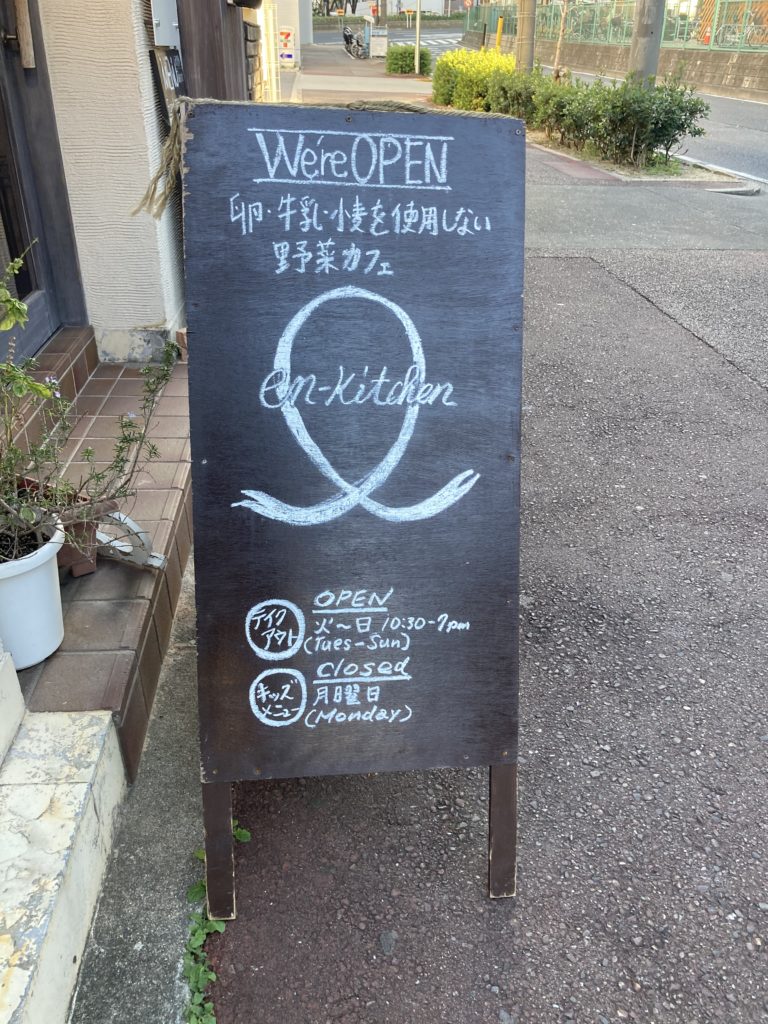 We're OPEN
卵・牛乳・小麦を使用しない
野菜カフェ
en-kitchen
テイク
アウト
OPEN
火～日 10:30-7pm
(Tues-Sun)
キッズ
メニュー
Closed
月曜日
(Monday)